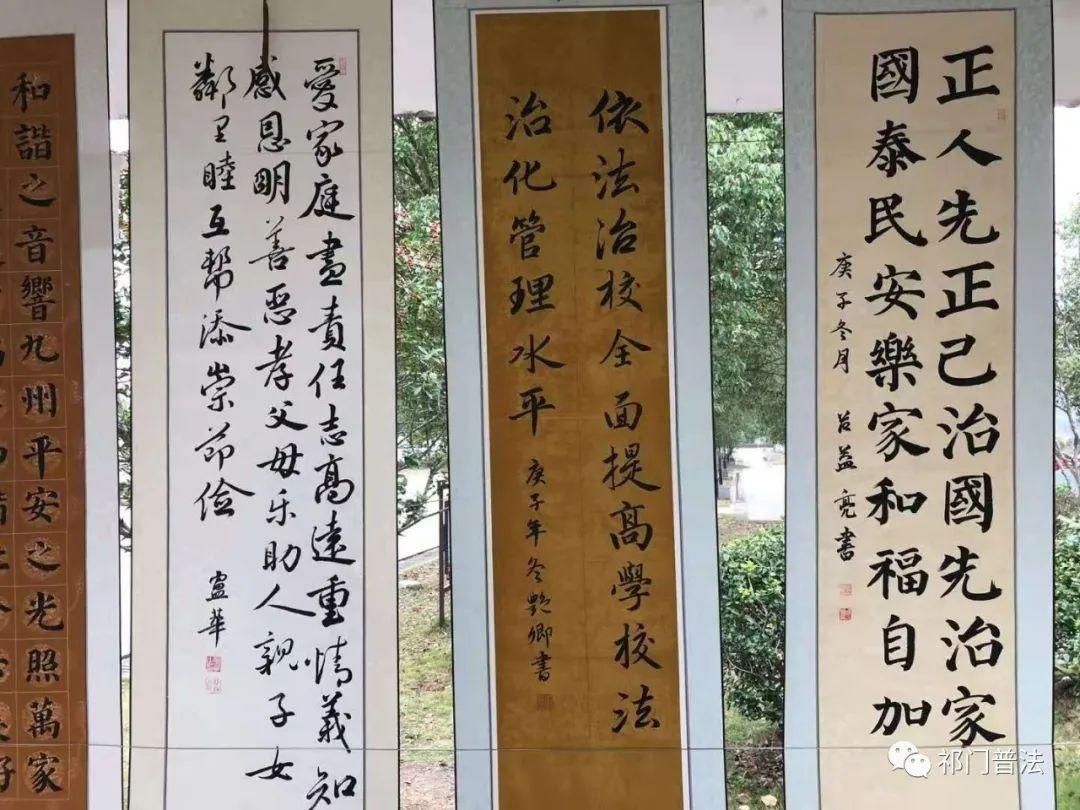 正人先正己治國先治家
國泰民安樂家和福自加
庚子冬月 吕益亮書
依法治校全面提高學校法
治化管理水平
庚子年冬艷卿書
愛家庭盡責任志高遠重情義知
感恩明善惡孝父母乐助人親子女
鄰里睦互幫添崇節儉
華
和諧之音響九州平安之光照萬家
祁门普法